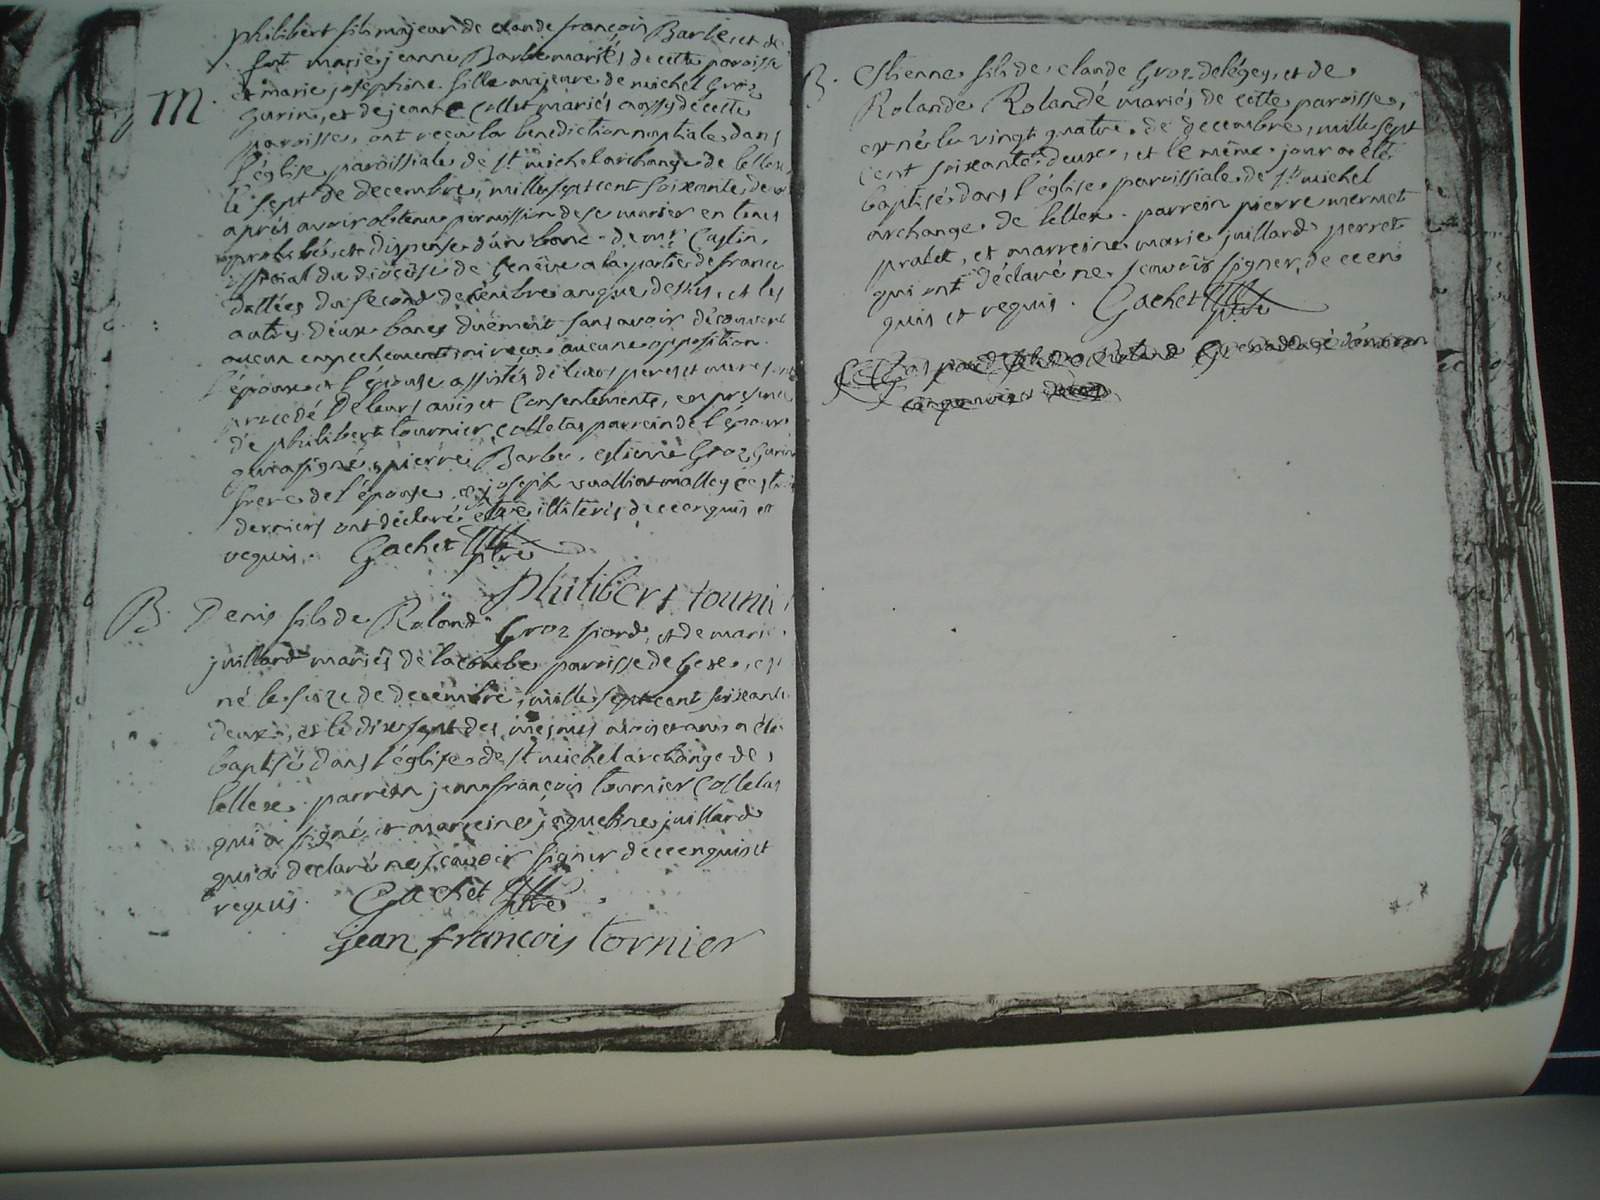 philibert fils majeur de claude françois Barbe, et de
fut marie jeanne Barbe mariés de cette paroisse
M. et marie josephine fille majeure de michel Groz
Gurin, et de jeanne Collet mariés aussy de cette
paroisse, ont reçu la benediction nuptiale dans
l'église paroissiale de st michel archange de lellex
le sept de decembre, mille sept cent soixante deux
aprés avoir obtenu permission de se marier en tems
prohibé, et dispense d'un banc de mr
official du diocèse de Genève a la partie de france
dattées du second decembre an que dessus, et les
autres deux bancs duëment sans avoir découvert
aucun empechement, ni reçu aucune opposition.
l'époux et l'épouse assistés de leurs peres et meres
procedé de leurs avis et consentements, en presence
de philibert tournier colletas parrein de l'époux
qui a signé, pierre Barbe, estienne Groz Gurin
frere de l'épouse, et joseph
derniers ont déclaré etre illiterés de ce enquis et
requis. Gachet ptre
philibert tourni
B. Denis fils de Roland Groz piard, et de marie
juillard mariés de la combe paroisse de Gex, est
né le seize de decembre, mille sept cent soixante
deux, et le dix sept des mesmes mois et an a été
baptisé dans l'église de st michel archange de
lellex. parrein jean françois tournier Colletas
qui a signé, et marreine jaqueline juillard
qui a declaré ne scavoir signer de ce enquis et
requis. Gachet ptre
jean françois tornier
B. Estienne fils de claude Groz delégey, et de
Rolande Rolandé mariés de cette paroisse,
est né le vingt quatre de decembre, mille sept
cent soixante deux, et le même jour a été
baptisé dans l'église paroissiale de st michel
archange de lellex. parrein pierre mermet
pralet, et marreine marie juillard perret
qui ont déclaré ne scavoir signer, de ce en
quis et requis. Gachet ptre